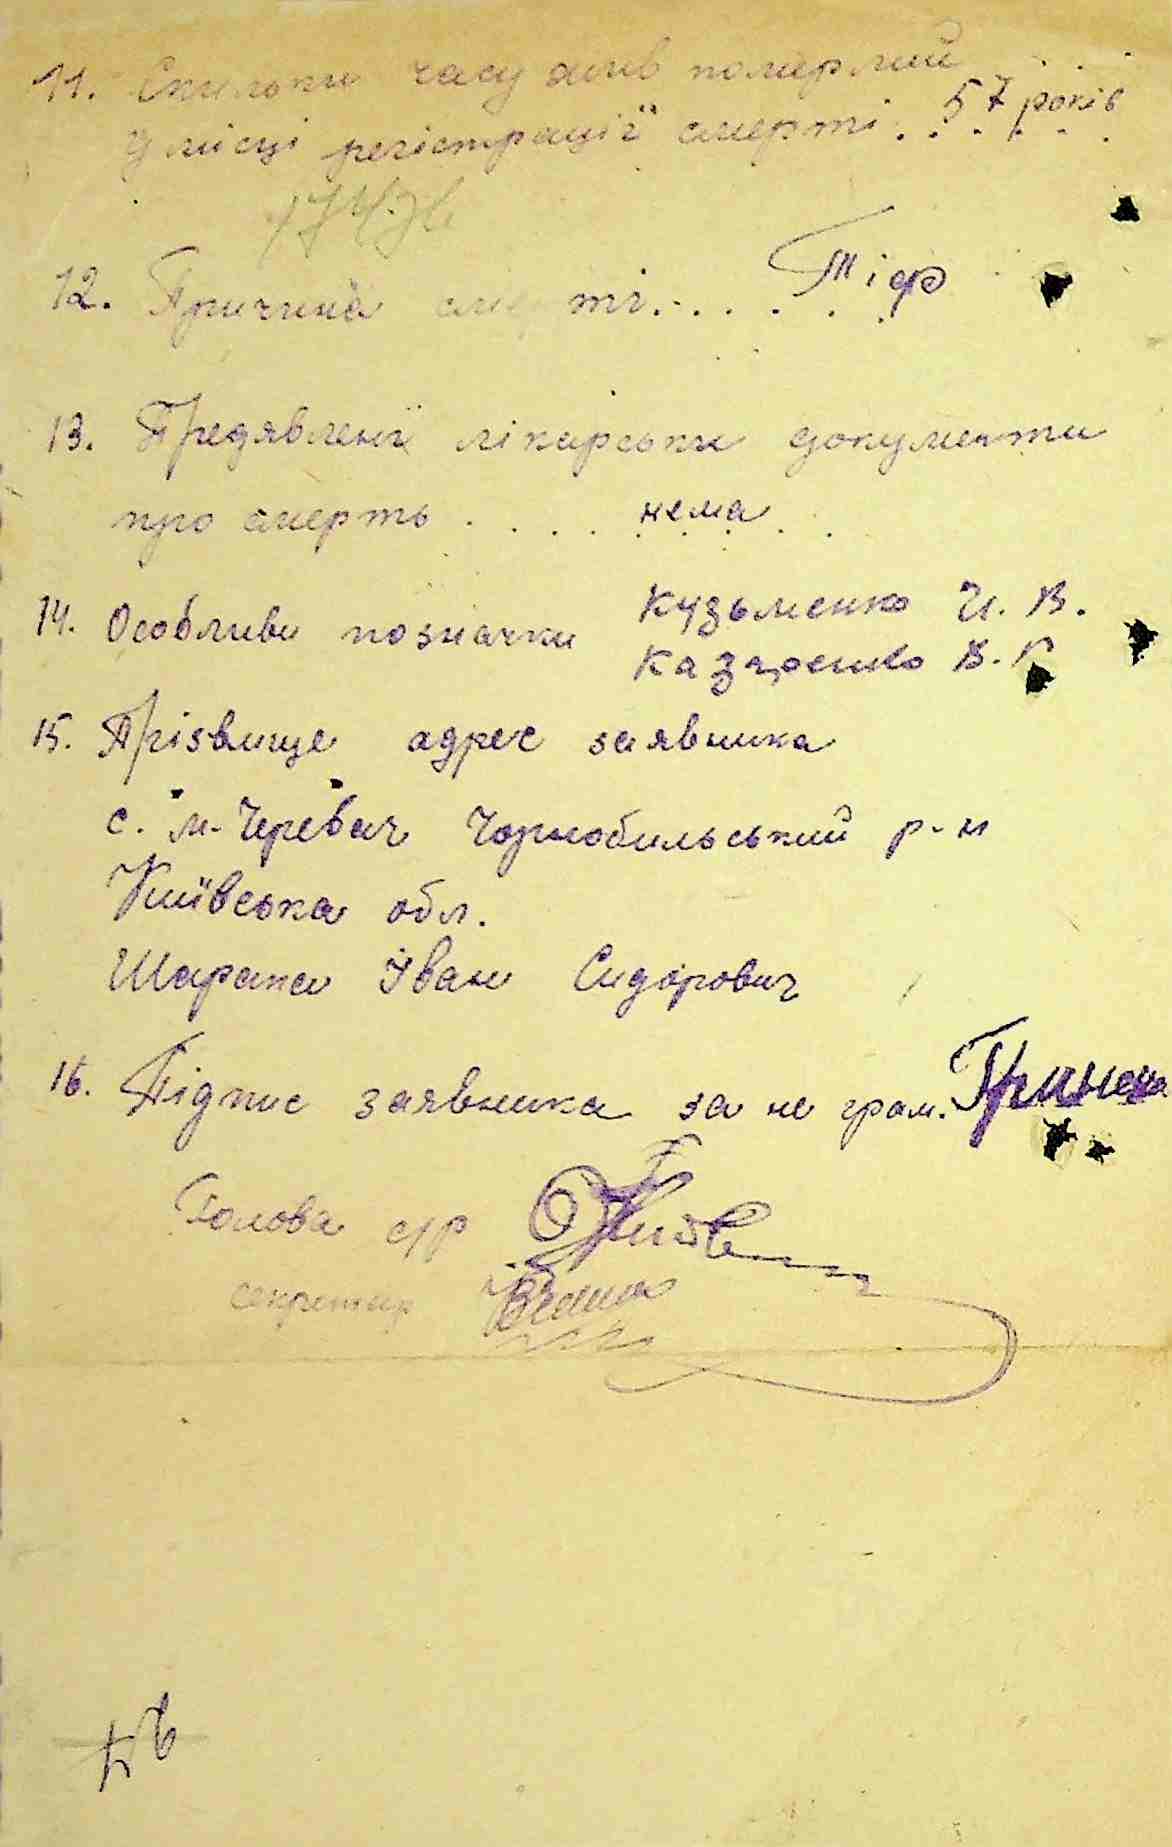 11. Скильки часу жив померлий
у місці регістрації смерті. 57 років
12. Причина смерті..... Тіф
13. Предявлені лікарськи документи
про смерть .... нема
14. Особливи позначки Кузьменко И. В.
В. Г
15. Прізвище адрес заявника
с. м. Черевач Чорнобильський р-н
Київська обл.
Шарапа Іван Сидорович
16. Підпис заявника за не грам.
Голова с/р
секретар